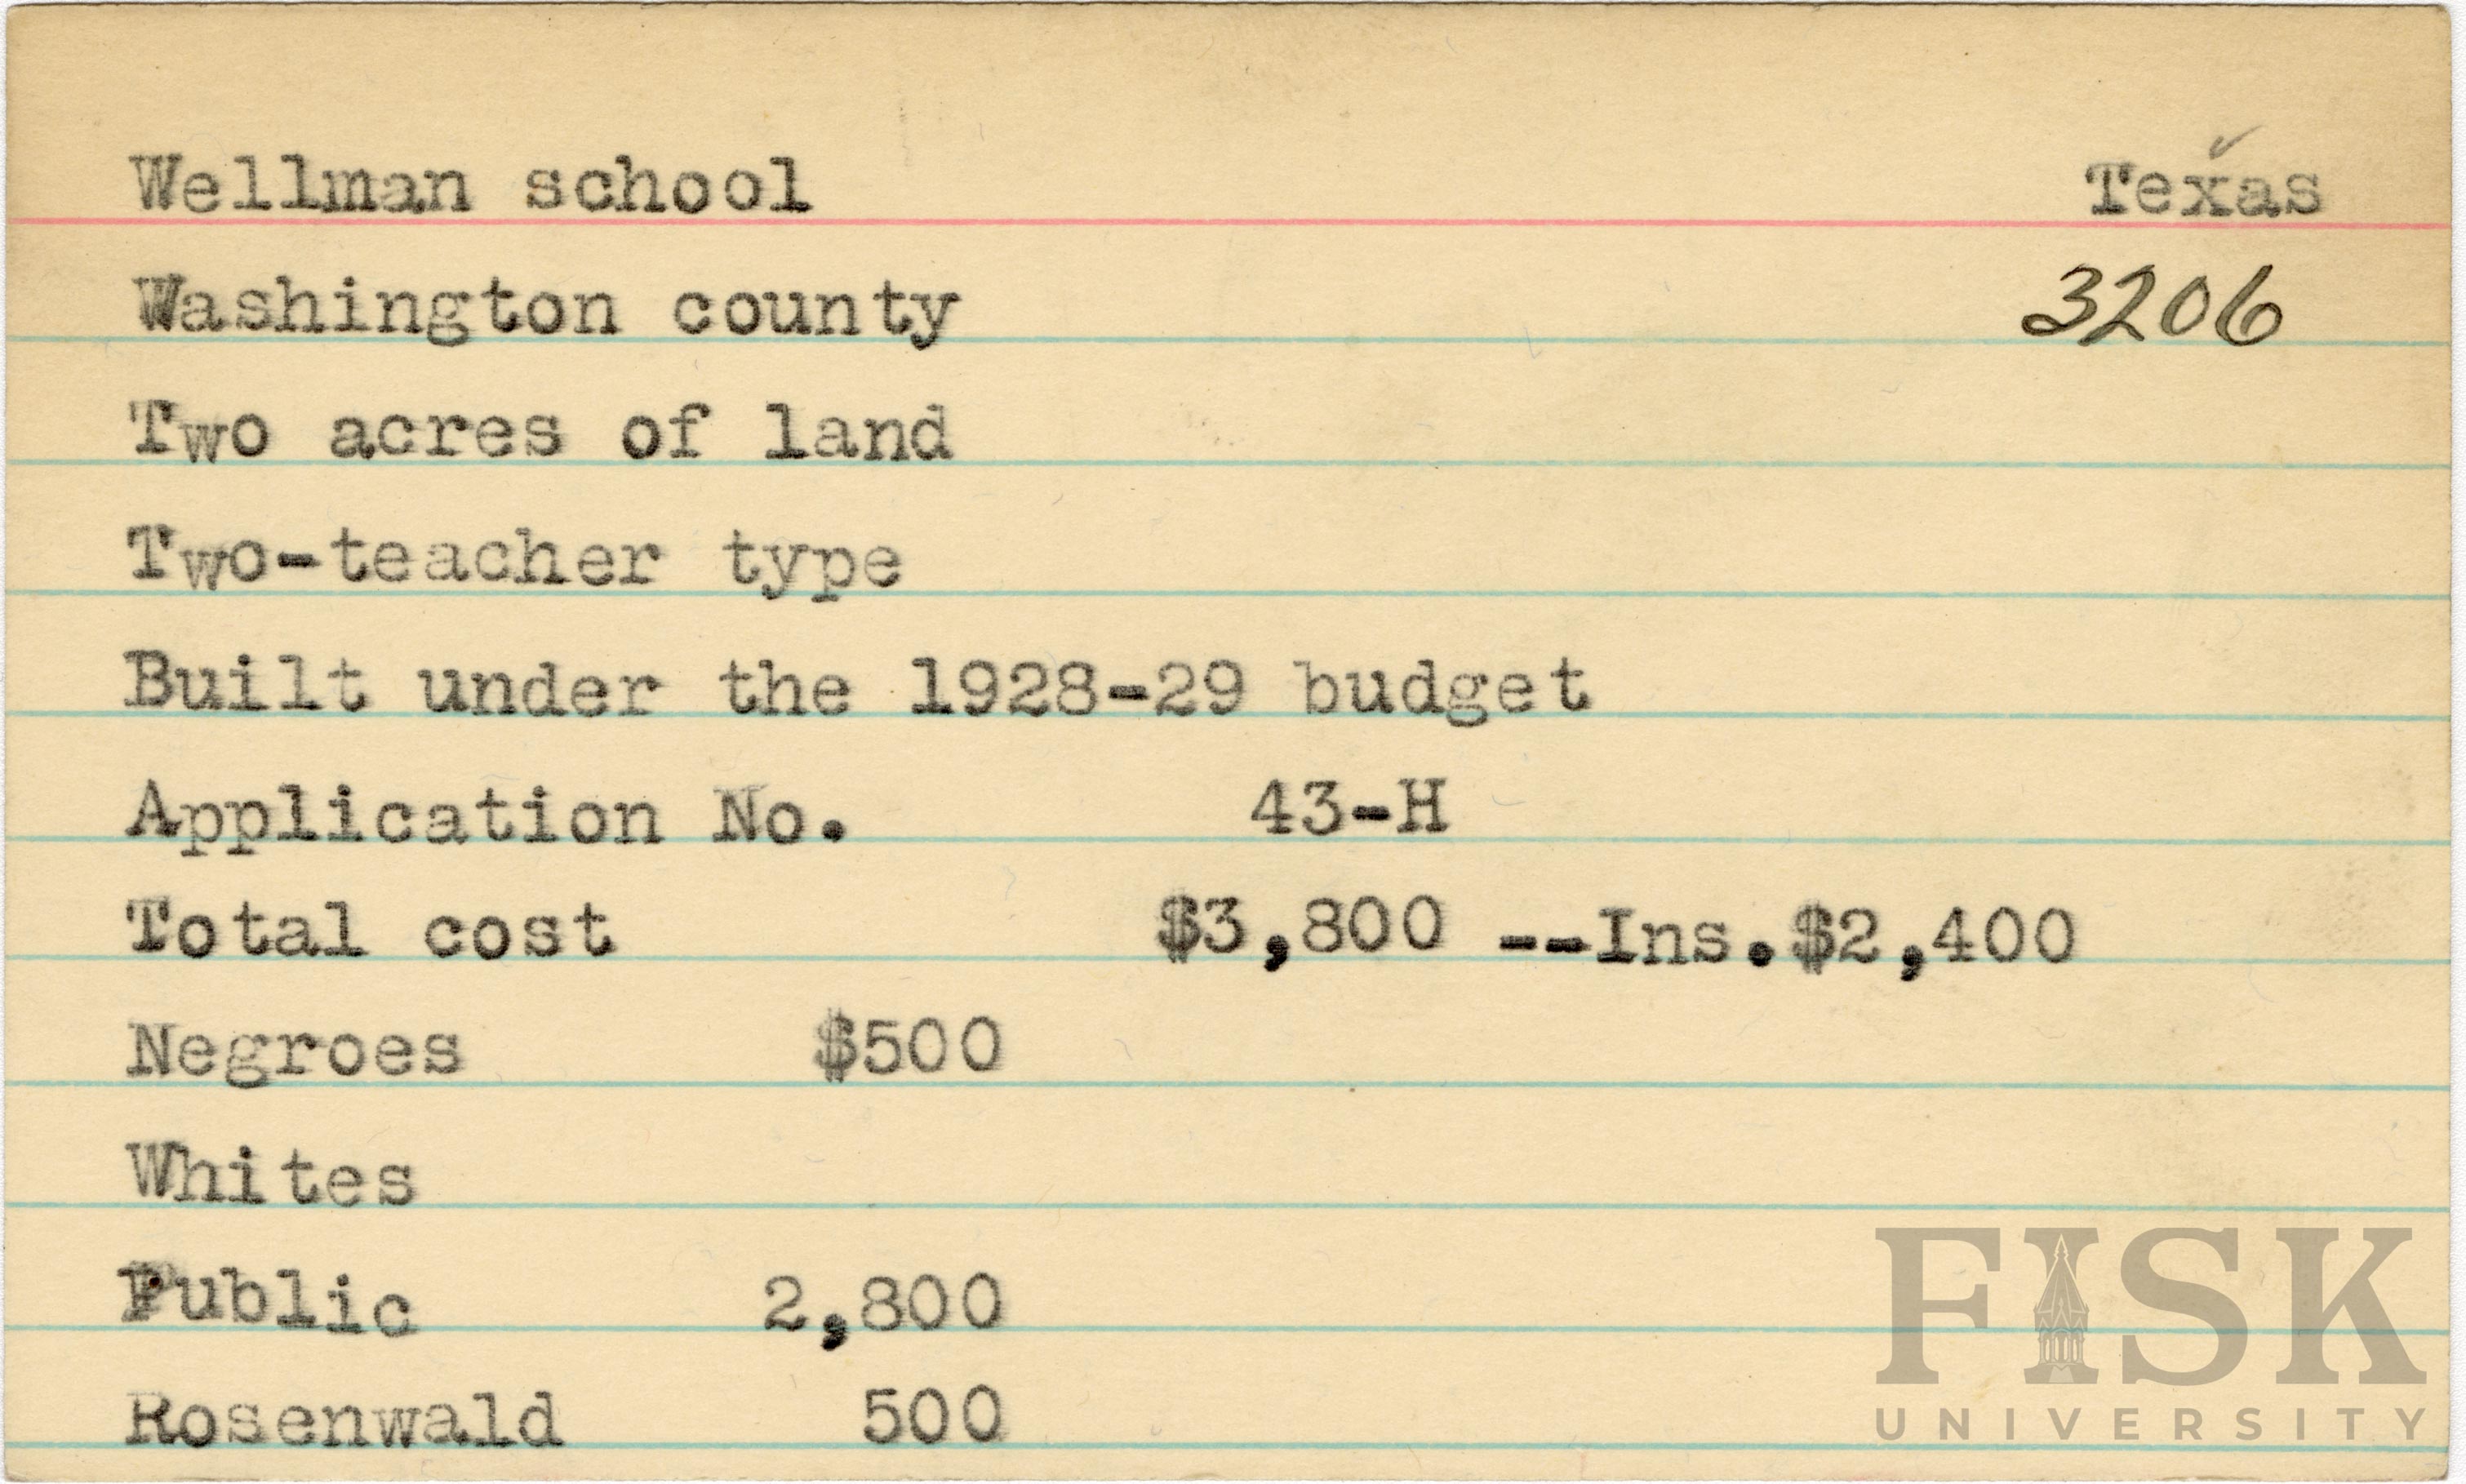 Wellman school Texas
Washington county 3206
Two acres of land
Two-teacher type
Built under the 1928-29 budget
Application No. 43-H
Total cost $3,800 --Ins.$2,400
Negroes $500
Whites
Public 2,800
Rosenwald 500
FISK
UNIVERSITY